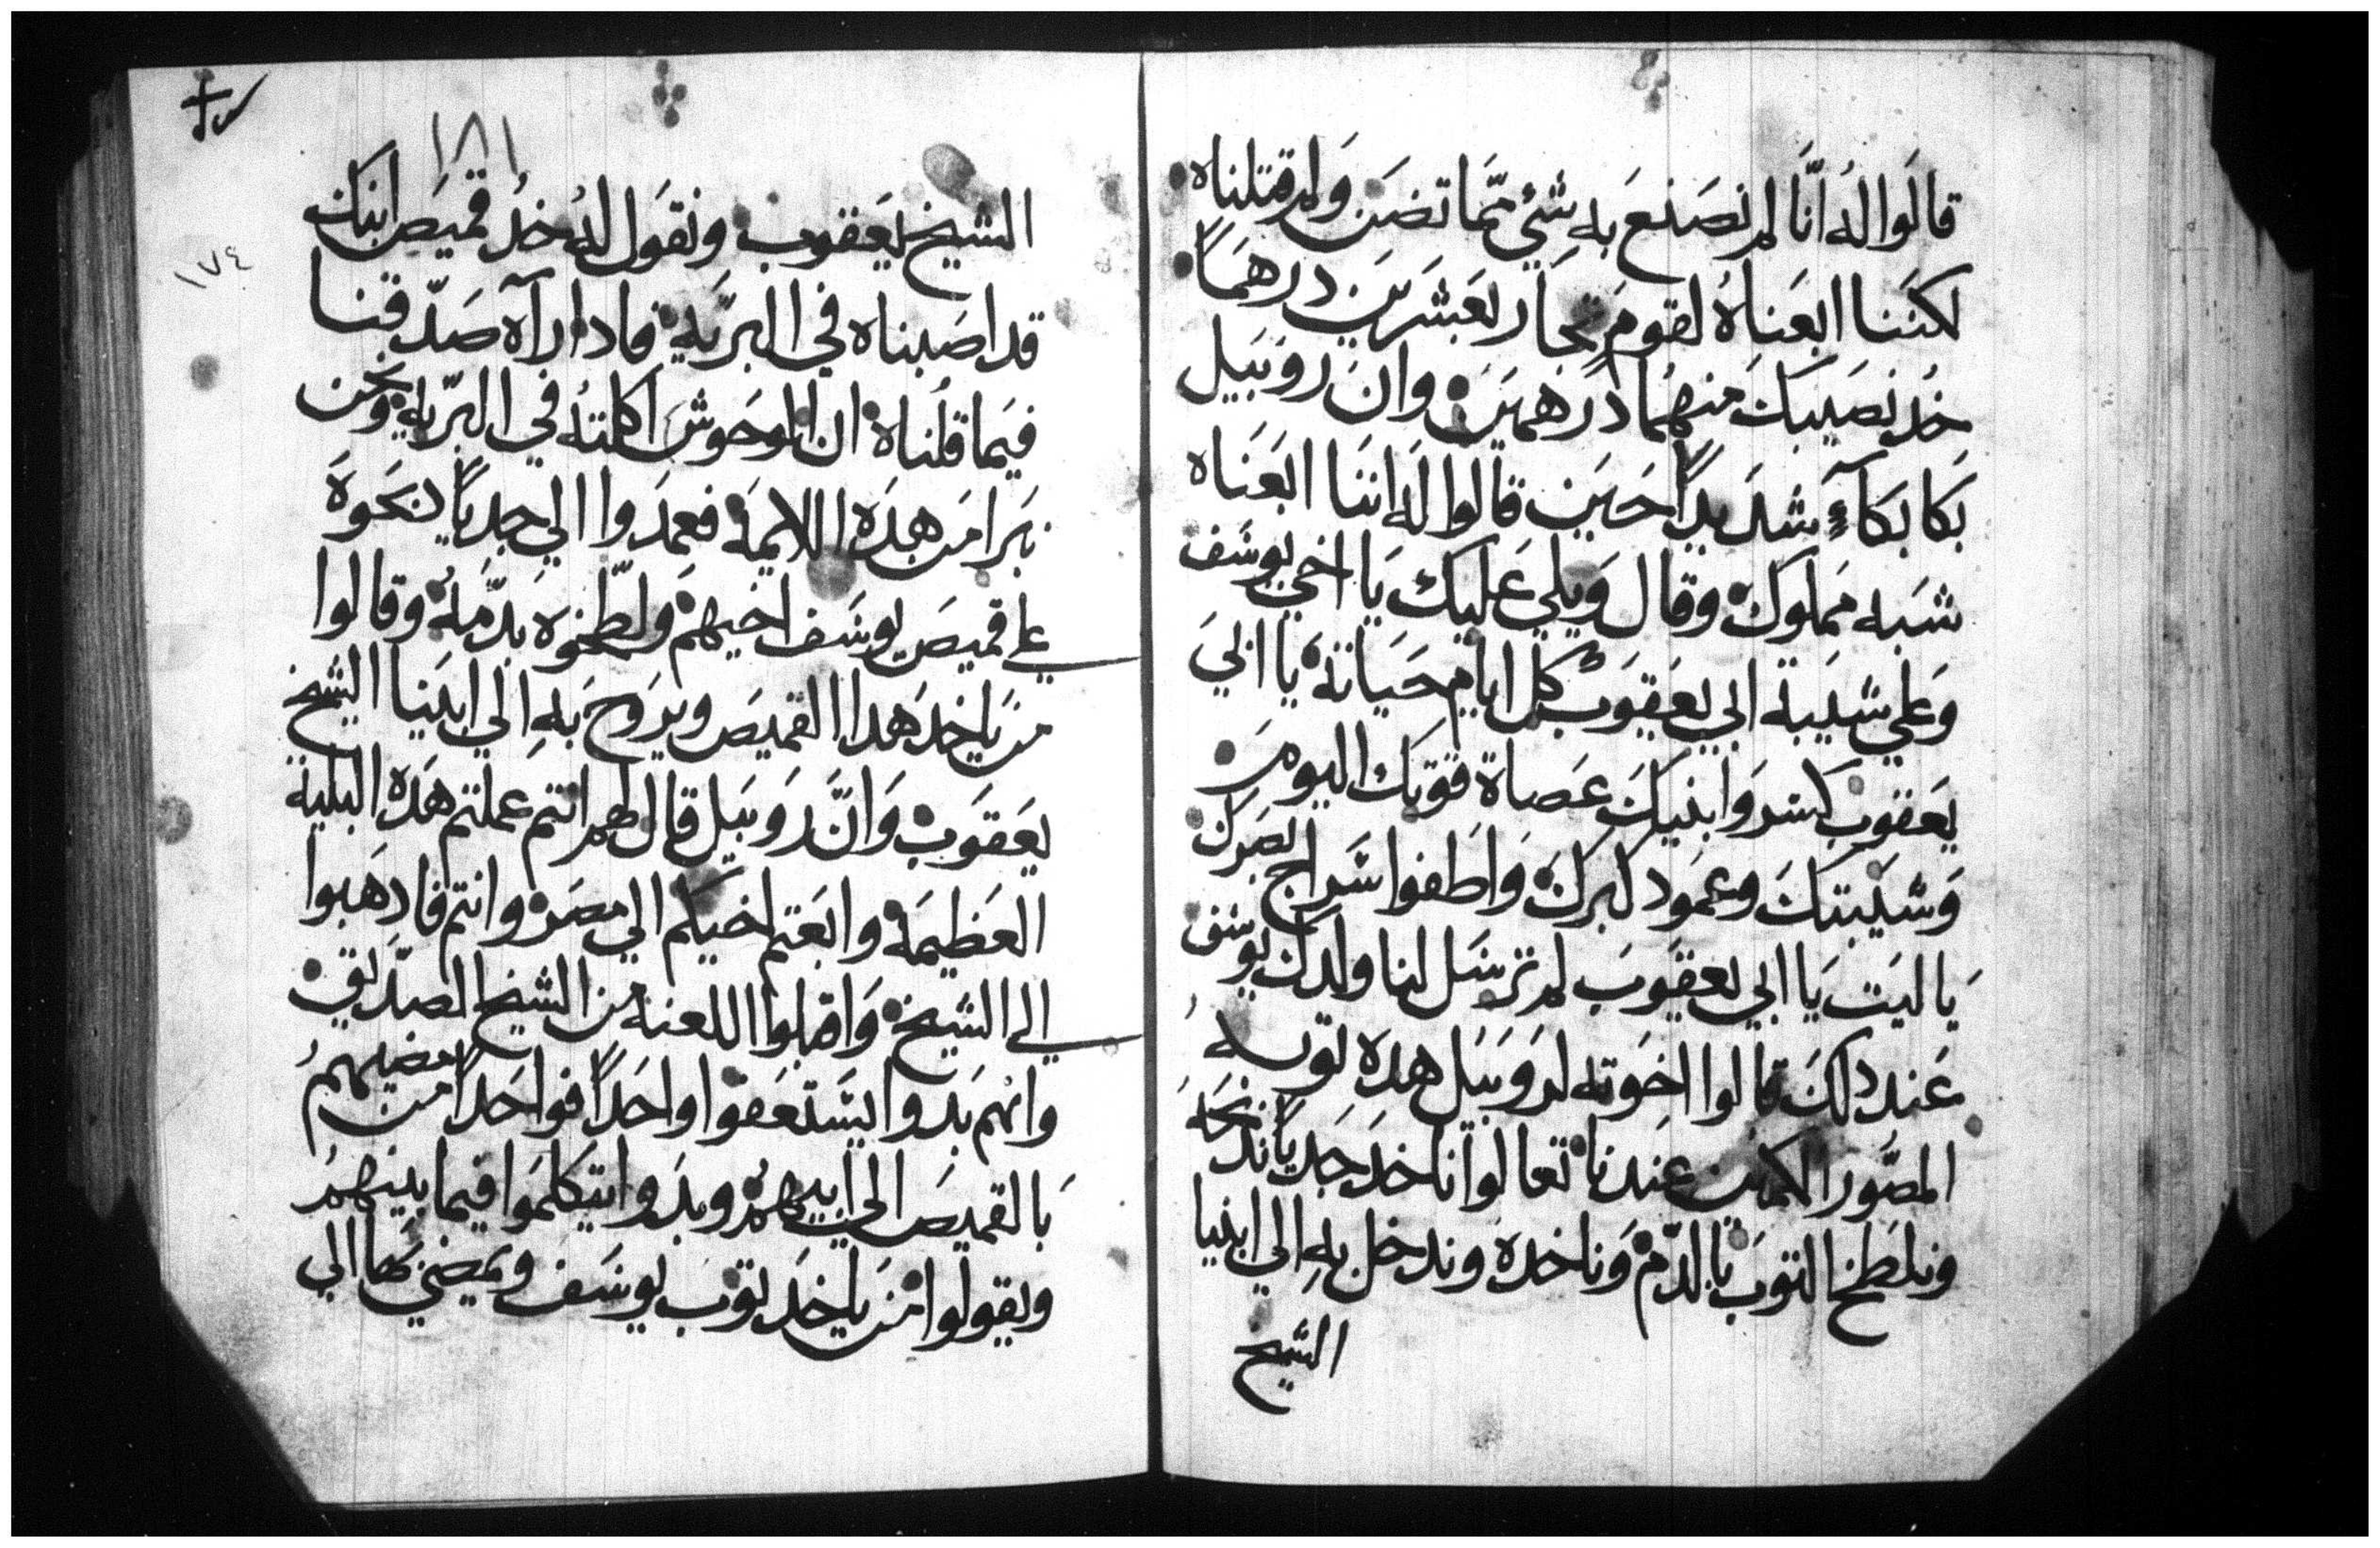 قالوا له انا لم نصنع به شي مما تضن ولم قتلناه
لكننا ابعناه لقوم تجار بعشرين درهماً
خد نصيبك منهما درهمين وان روبيل
بكا بكاءً شديداً حين قالوا له اننا ابعناه
شبه مملوك وقال ويلي عليك يا اخي يوسف
وعلي شيبة ابي يعقوب كل ايام حياته يا ابي
يعقوب كسروا بنيك عصاة قوتك اليوم
وشيبتك وعمود كبرك واطفوا سراج بصرك
يا ليت يا ابي يعقوب لم ترسل لنا ولدك يوسف
عند دلك قالوا اخوته لروبيل هده توبه
المصور الكمين عندنا تعالوا ناخد جدياً ندبحه
ونلطخ التوب بالدم وناخده وندخل به الي ابينا
الشيخ
١٨١
١٧٤
الشيخ يعقوب ونقول له خد قميص ابنك
قد اصبناه في البريه فادا رآه صدقنا
فيما قلناه ان الوحوش اكلته في البريه ونحن
نبرا من هده اللايمه فعمدوا الي جدياً دبحوه
علي قميص يوسف اخيهم ولطخوه بدمه وقالوا
من ياخد هدا القميص ويروح به الي ابينا الشيخ
يعقوب وان روبيل قال لهم انتم عملتم هده البليه
العظيمه وابعتم اخيكم الي مصر وانتم فادهبوا
الي الشيخ واقبلوا اللعنه من الشيخ الصديق
وانهم بدوا يستعفوا واحداً فواحداً من مضيهم
بالقميص الي ابيهم وبدوا يتكلموا فيما بينهم
ويقولوا من ياخد توب يوسف ويمضي بها الي